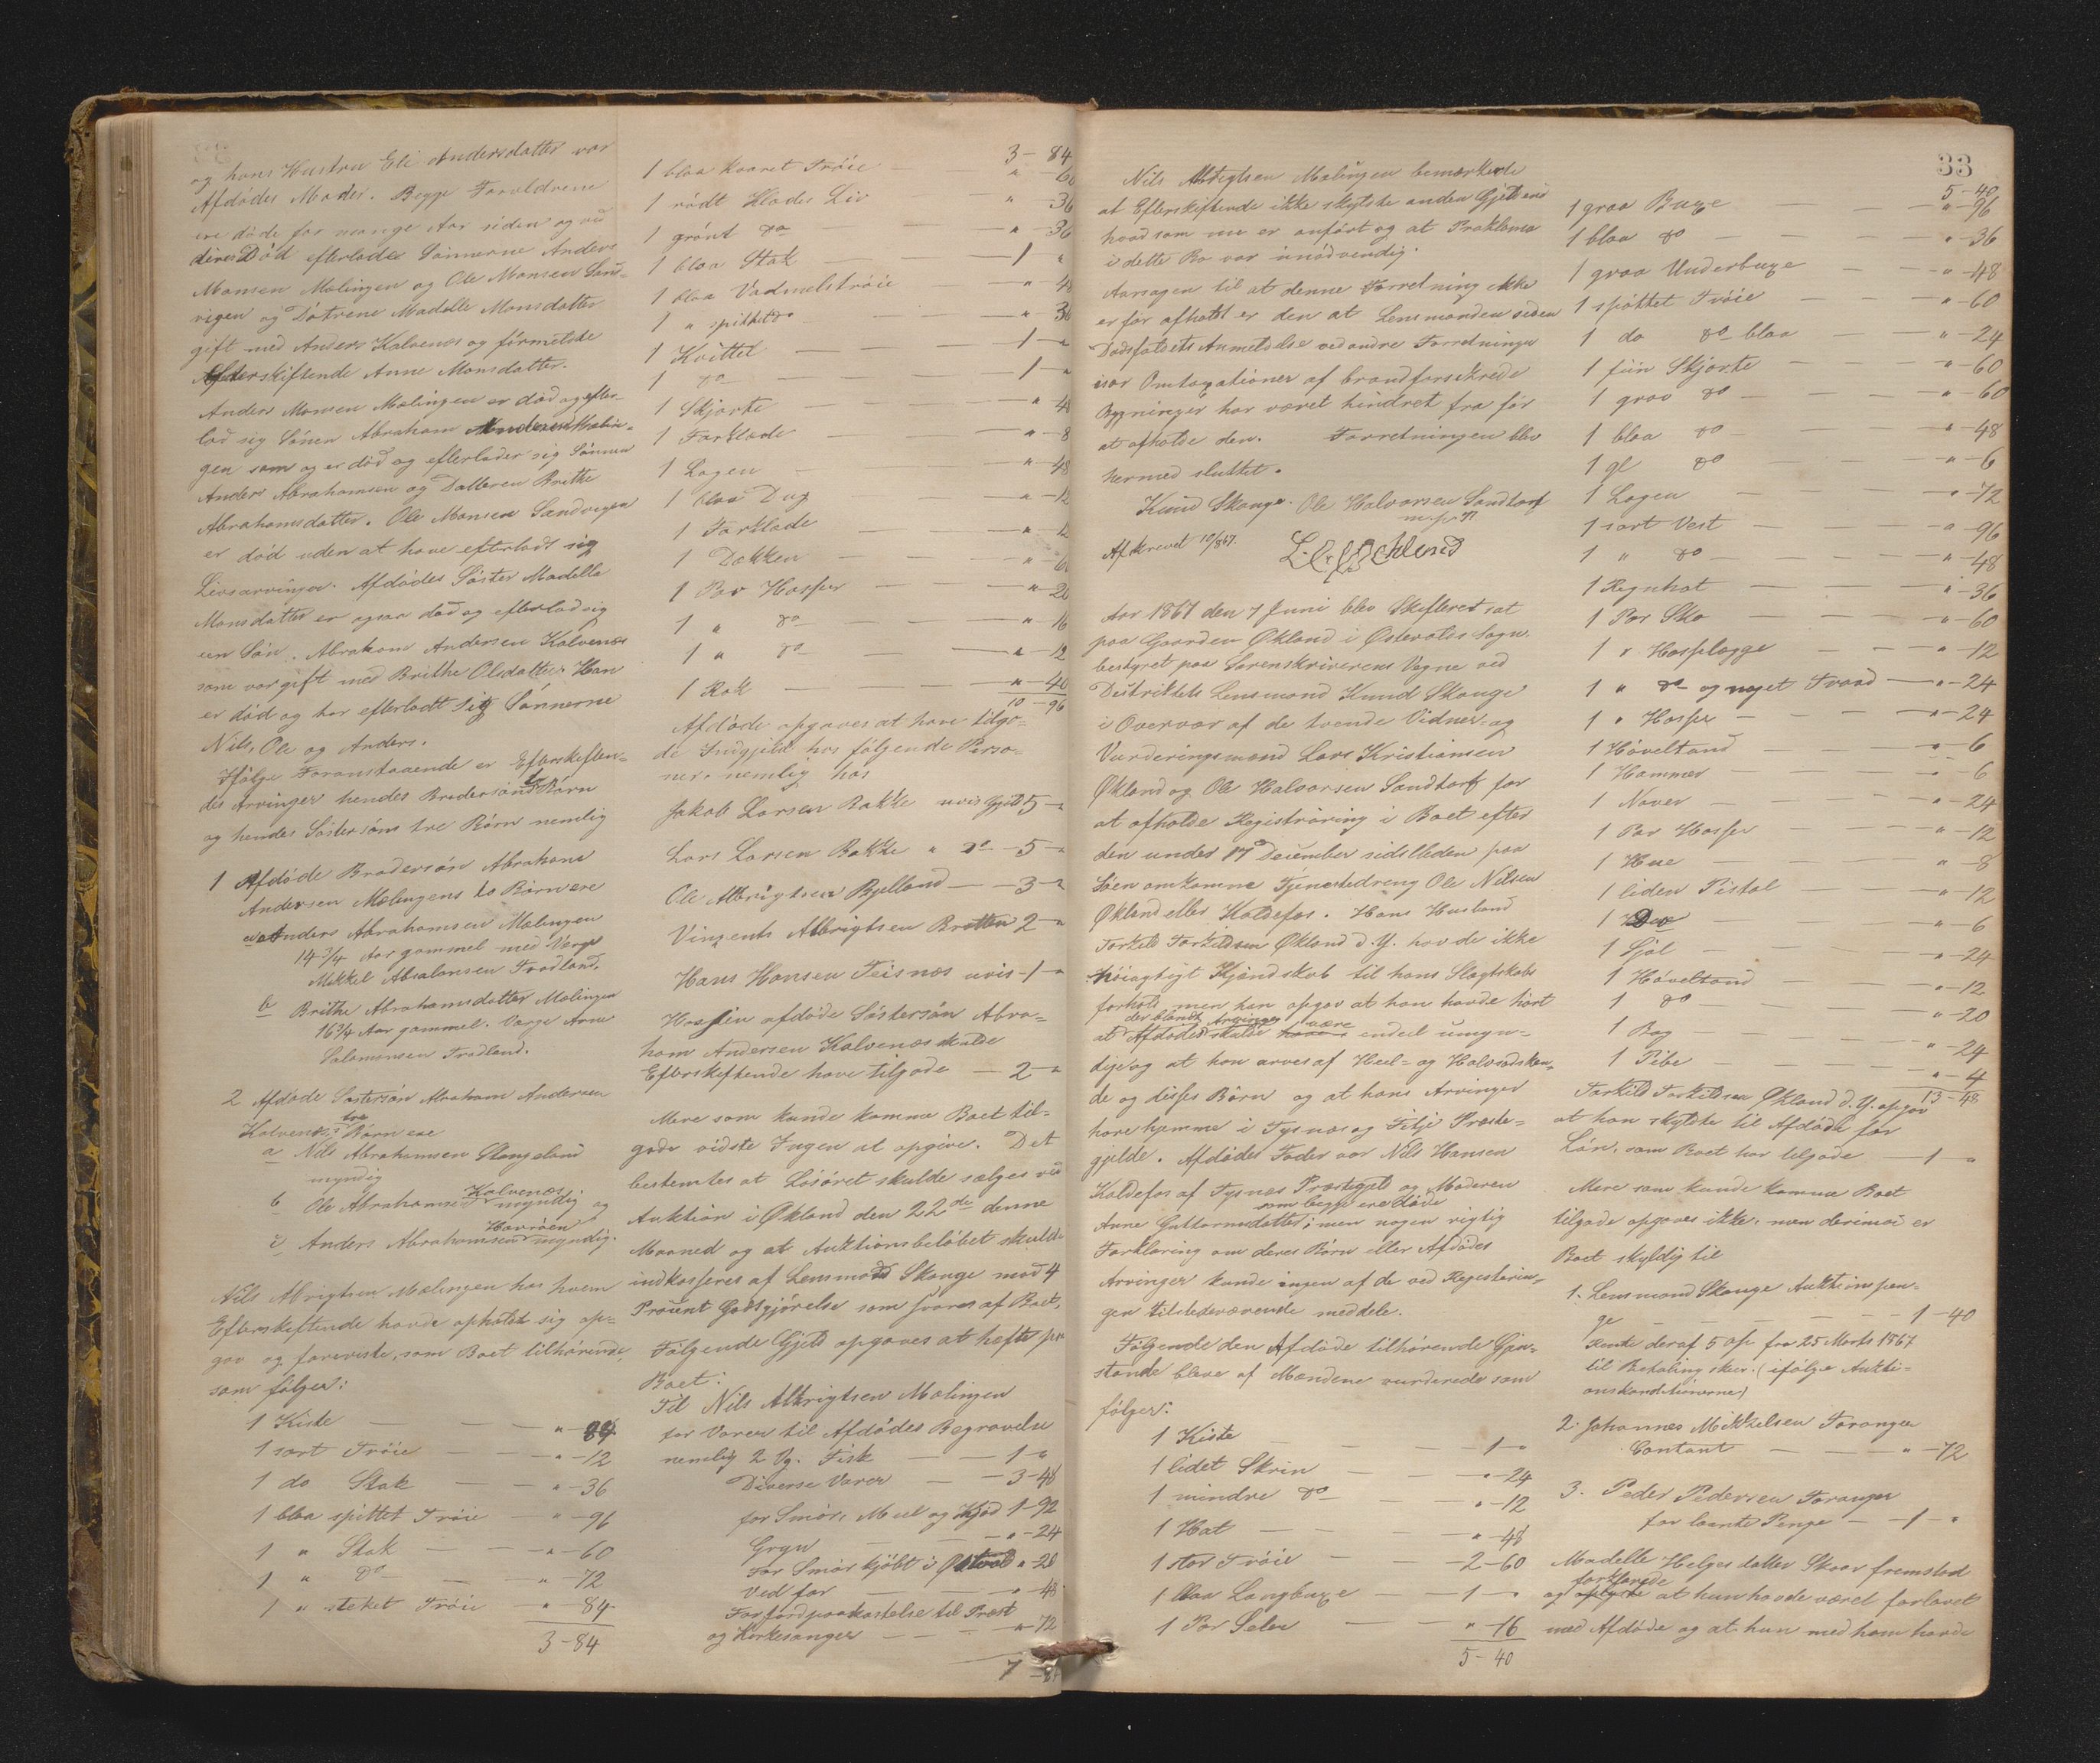 og hans Hustru Eli Andersdatter var
Afdødes Moder. Begge Forældrene
ere døde for mange Aar siden og ved
deres Død efterlode Sønnerne Anders
Monsen Mælingen og Ole Monsen Sand-
vigen og Døtrene Madelle Monsdatter
gift med Anders Kalvenæs og førmeldte
Efterskiftende Anne Monsdatter.
Anders Monsen Mælingen er død og efter-
lod sig Sønen Abraham Andersen Mælin-
gen som og er død og efterlader sig Sønnen
Anders Abrahamsen og Datteren Brithe
Abrahamsdatter. Ole Monsen Sandvigen
er død uden at have efterladt sig
Livsarvinger. Afdødes Søster Madelle
Monsdatter er ogsaa død og efterlod sig
een Søn, Abraham Andersen Kalvenæs
som var gift med Brithe Olsdatter. Han
er død og har efterladt sig Sønnerne
Nils, Ole og Anders.
Ifølge Foranstaaende er Efterskiften-
des Arvinger hendes Brodersøns to Børn
og hendes Søstersøns tre Børn nemlig
1 Afdøde Brodersøn Abraham
Andersen Mælingens to Børn ere
a Anders Abrahamsen Mælingen
14 3/4 Aar gammel med Værge
Mikkel Absalonsen Tradland.
b Brithe Abrahamsdatter Mælingen
16 3/4 Aar gammel. Værge Arne
Salamonsen Tradland.
2 Afdøde Søstersøn Abraham Andersen
Kalvenæs's tre Børn ere
a Nils Abrahamsen Stangeland
myndig
b Ole Abrahamsen Kalvenæs myndig og
c Anders Abrahamsen Havrøen myndig.
Nils Albrigtsen Mælingen hos hvem
Efterskiftende havde opholdt sig op-
gav og foreviste, som Boet tilhørende,
som følger:
1 Kiste — " - 84
1 sort Trøie — " - 12
1 do Stak — " - 36
1 blaa spittet Trøie — " - 96
1 " Stak — " - 60
1 " do — " - 72
1 " steket Trøie — " - 84
3 - 84
3 - 84
1 blaa Kaaret Trøie — " - 60
1 rødt Klædes Liv — " - 36
1 grønt do — " - 36
1 blaa Stak — 1 - "
1 blaa Vadmelstrøie — " - 48
1 " spittet do — " - 36
1 Kvittel — 1 - "
1 do — 1 - "
1 Skjorte — " - 48
1 Forklæde — " - 8
1 Lagen — " - 48
1 blaa Dug — " - 12
1 Forklæde — " - 12
1 Dækken — " - 60
1 Par Hoser — " - 20
1 " do — " - 16
1 " do — " - 12
1 Rok — " - 40
10 - 96
Afdøde opgaves at have tilgo-
de Indgjeld hos følgende Perso-
ner. nemlig hos
Jakob Larsen Bakke uvis Gjeld 5 - "
Lars Larsen Bakke " do — 5 - "
Ole Albrigtsen Bjelland — 3 - "
Vinzents Albrigtsen Bratten 2 - "
Hans Hansen Teisnæs uvis - 1 - "
Hos sin afdøde Søstersøn Abra-
ham Andersen Kalvenæs skulde
Efterskiftende have tilgode — 2 - "
Mere som kunde komme Boet til-
gode vidste Ingen at opgive. Det
bestemtes at Løsøret skulde sælges ved
Auktion i Økland den 22de denne
Maaned og at Auktionsbeløbet skulde
indkasseres af Lensmand Skauge mod 4
Procent Godtgjørelse som svares af Boet.
Følgende Gjeld opgaves at hefte paa
Boet:
Til Nils Albrigtsen Mælingen
for Varer til Afdødes Begravelse
nemlig 2 Vg. Fisk — 1 - "
Diverse Varer — 3 - 48
for Smør, Meel og Kjød 1 - 92
Gryn — " - 24
For Smør kjøbt i Østvold " - 28
Ved for — " - 48
For Jordpaakastelse til Præst
og Kirkesanger — " - 72
7
33
Nils Albrigtsen Mælingen bemærkede
at Efterskiftende ikke skyldte anden Gjeld end
hvad som nu er anført og at Proklama
i dette Bo var unødvendig.
Aarsagen til at denne Forretning ikke
er før afholdt er den at Lensmanden siden
Dødsfaldets Anmeldelse ved andre Forretninger
især Omtaxationer af brandforsikrede
Bygninger har været hindret fra før
at afholde den. Forretningen blev
hermed sluttet.
Knud Skauge. Ole Halvorsen Sandtorf
m. p. P.
Afskrevet 10/8 67.
Aar 1867 den 7 Juni blev Skifteret sat
paa Gaarden Økland i Østvolds Sogn,
bestyret paa Sorenskriverens Vegne ved
Distriktets Lensmand Knud Skauge
i Overvær af de tvende Vidner og
Vurderingsmænd Lars Kristiansen
Økland og Ole Halvorsen Sandtorf for
at afholde Registrering i Boet efter
den under 17 December sidstleden paa
Søen omkomne Tjenestedreng Ole Nilsen
Økland eller Koldefos. Hans Husbond
Torkild Torkildsen Økland d. Y. havde ikke
nøiagtigt Kjendskab til hans Slægtskabs
forhold men han opgav at han havde hørt
at der blandt Afdødes Arvinger skulde være endeel umyn-
dige og at han arves af Heel- og Halvsødsken-
de og disses Børn og at hans Arvinger
have hjemme i Tysnæs og Fitje Præste-
gjelde. Afdødes Fader var Nils Hansen
Koldefos af Tysnæs Præstegjeld og Moderen
Anne Guttormsdatter, som begge ere døde; men nogen rigtig
Forklaring om deres Børn eller Afdødes
Arvinger kunde ingen af de ved Registerin-
gen tilstedeværende meddele.
Følgende den Afdøde tilhørende Gjen-
stande bleve af Mændene vurderede som
følger:
1 Kiste — 1 - "
1 lidet Skrin — " - 24
1 mindre do — " - 12
1 Hat — " - 48
1 stor Trøie — 2 - 60
1 blaa Langbuxe — 1 - "
1 Par Seler — " - 16
5 - 40
5 - 40
1 graa Buxe — " - 96
1 blaa do — " - 36
1 graa Underbuxe — " - 48
1 spøttet Trøie — " - 60
1 do do blaa — " - 24
1 fiin Skjorte — " - 60
1 graa do — " - 60
1 blaa do — " - 48
1 gl do — " - 6
1 Lagen — " - 72
1 sort Vest — " - 96
1 " do — " - 48
1 Regnhat — " - 36
1 Par Sko — " - 60
1 " Hoselægge — " - 12
1 " do og noget Traad — " - 24
1 " Hoser — " - 24
1 Høveltand — " - 6
1 Hammer — " - 6
1 Naver — " - 24
1 Par Hoser — " - 12
1 Hue — " - 8
1 liden Pistol — " - 12
1 Do — " - 6
1 Sjal — " - 24
1 Høveltand — " - 12
1 do — " - 20
1 Bog — " - 24
1 Pibe — " - 4
13 - 48
Torkild Torkildsen Økland d. Y. opgav
at han skyldte til Afdøde for
Løn, som Boet har tilgode — 1 - "
Mere som kunde komme Boet
tilgode opgaves ikke, men derimod er
Boet skyldig til
1. Lensmand Skauge Auktionspen-
ge — 1 - 40
Rente deraf 5 op fra 25 Marts 1867
til Betaling skeer. (ifølge Aukti-
onskonditionerne)
2. Johannes Mikkelsen Foranger
Contant — " - 72
3. Peder Pedersen Foranger
for laante Penge — 1 - "
Madelle Helgesdatter Skaar fremstod
og forklarede at hun havde været forlovet
med Afdøde og at hun med ham havde